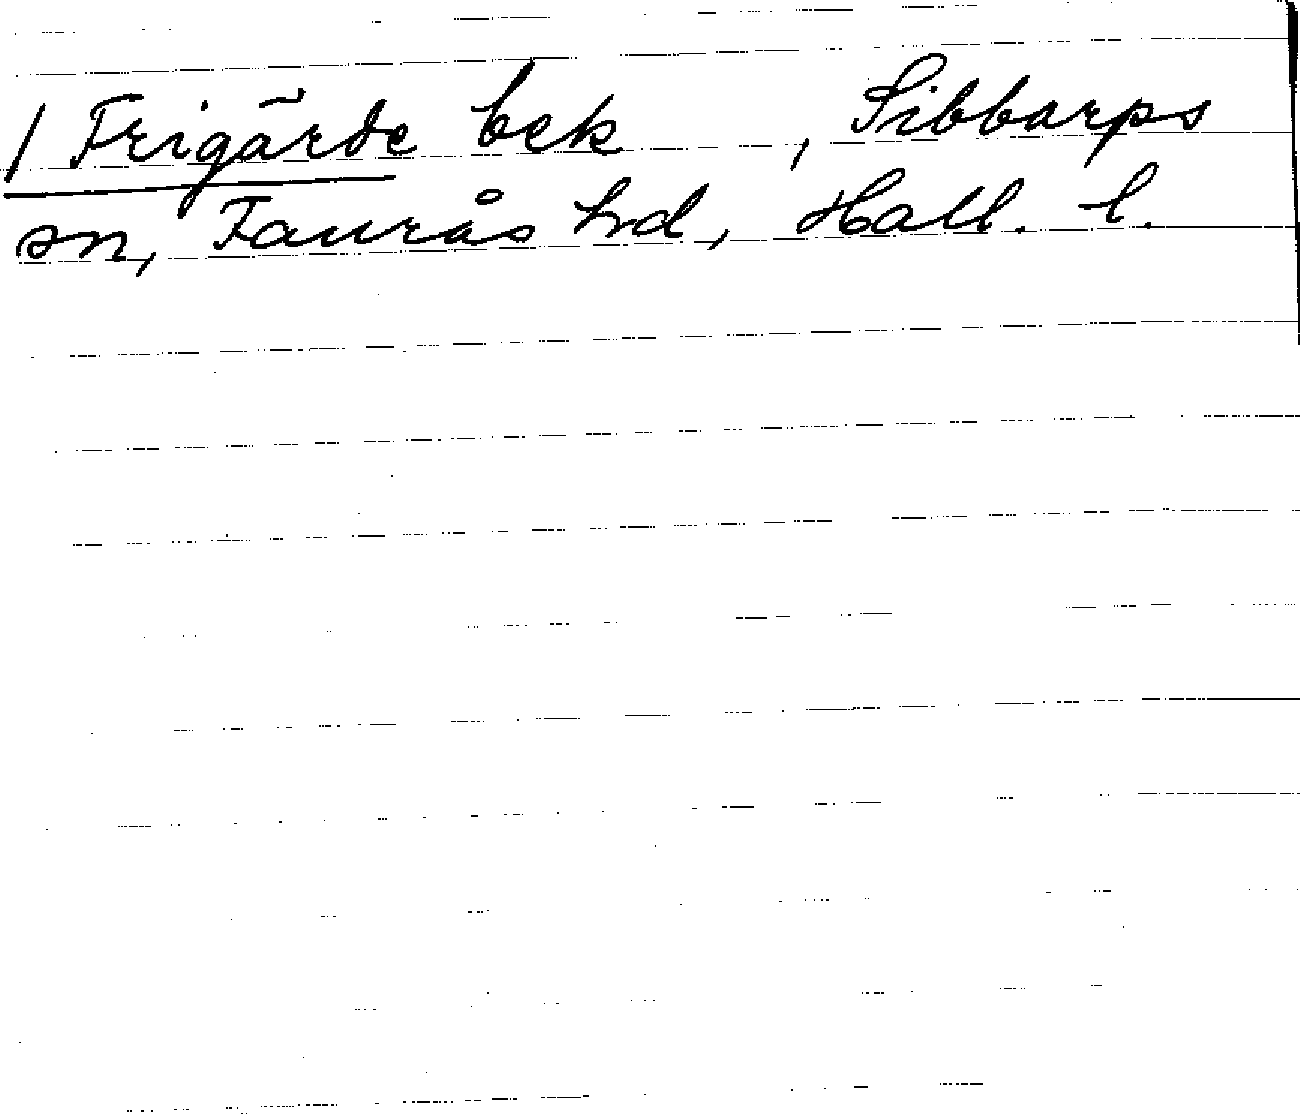 / Frigärde bek , Sibbarps
sn, Faurås hd, Hall. l.